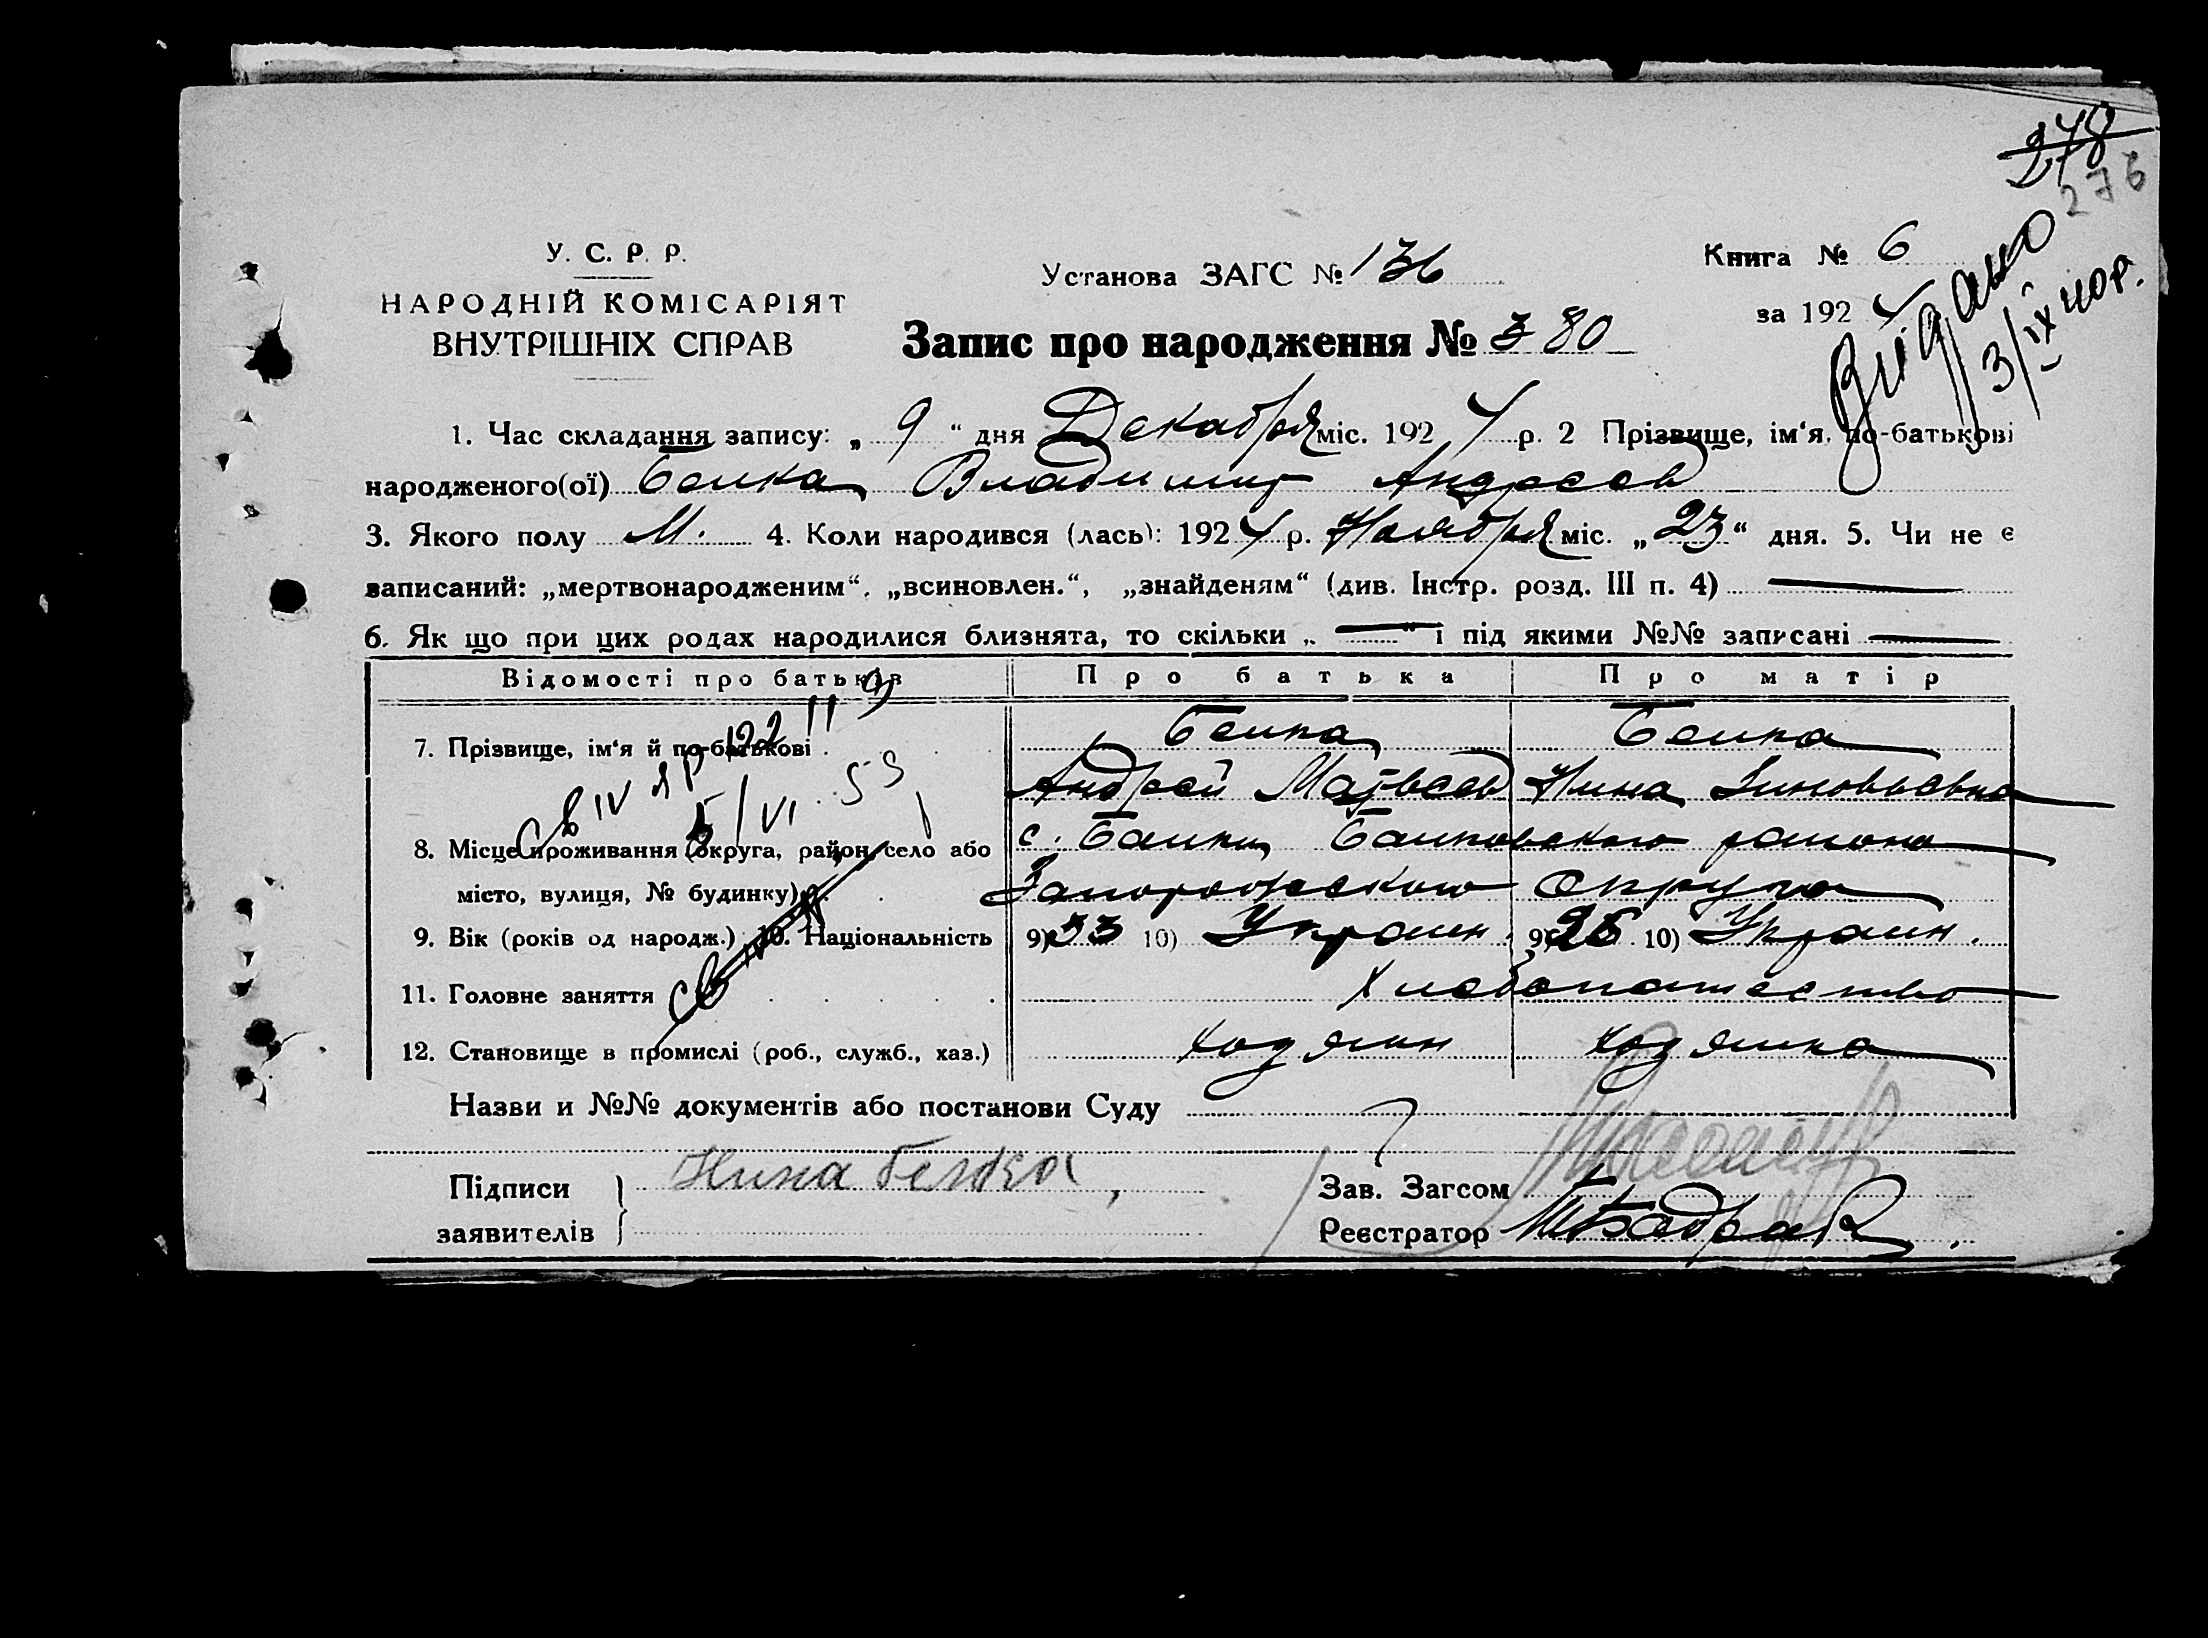 278
276
У. С. Р. Р.
НАРОДНІЙ КОМІСАРІЯТ
ВНУТРІШНІХ СПРАВ
Установа ЗАГС № 136
Книга № 6
за 1924
Видано
3/IX
Запис про народження № 380
1. Час складання запису: „ 9 “ дня Декабря міс. 1924 р. 2 Прізвище, ім‘я, по-батькові
народженого(ої) Белка Владимир Андреев
3. Якого полу М. 4. Коли народився (лась): 1924 р. Ноября міс. „ 23 “ дня. 5. Чи не є
записаний: „мертвонародженим“, „всиновлен.“, „знайденям“ (див. Інстр. розд. III п. 4) —
6. Як що при цих родах народилися близнята, то скільки „ — “ і під якими №№ записані —
Відомості про батьків Про батька Про матір
7. Прізвище, ім‘я й по-батькові . Белка Белка
Андрей Матвеев Нина Зиновьевна
8. Місце проживання (округа, район, село або с. Балки Балковского района
місто, вулиця, № будинку) Запорожского округа
9. Вік (років од народж.) 10. Національність 9) 33 10) Украин. 9) 26 10) Украин.
11. Головне заняття Хлебопашество
12. Становище в промислі (роб., служб., хаз.) хозяин хозяйка
Назви и №№ документів або постанови Суду
Підписи заявителів Нина Белка
Зав. Загсом
Реєстратор